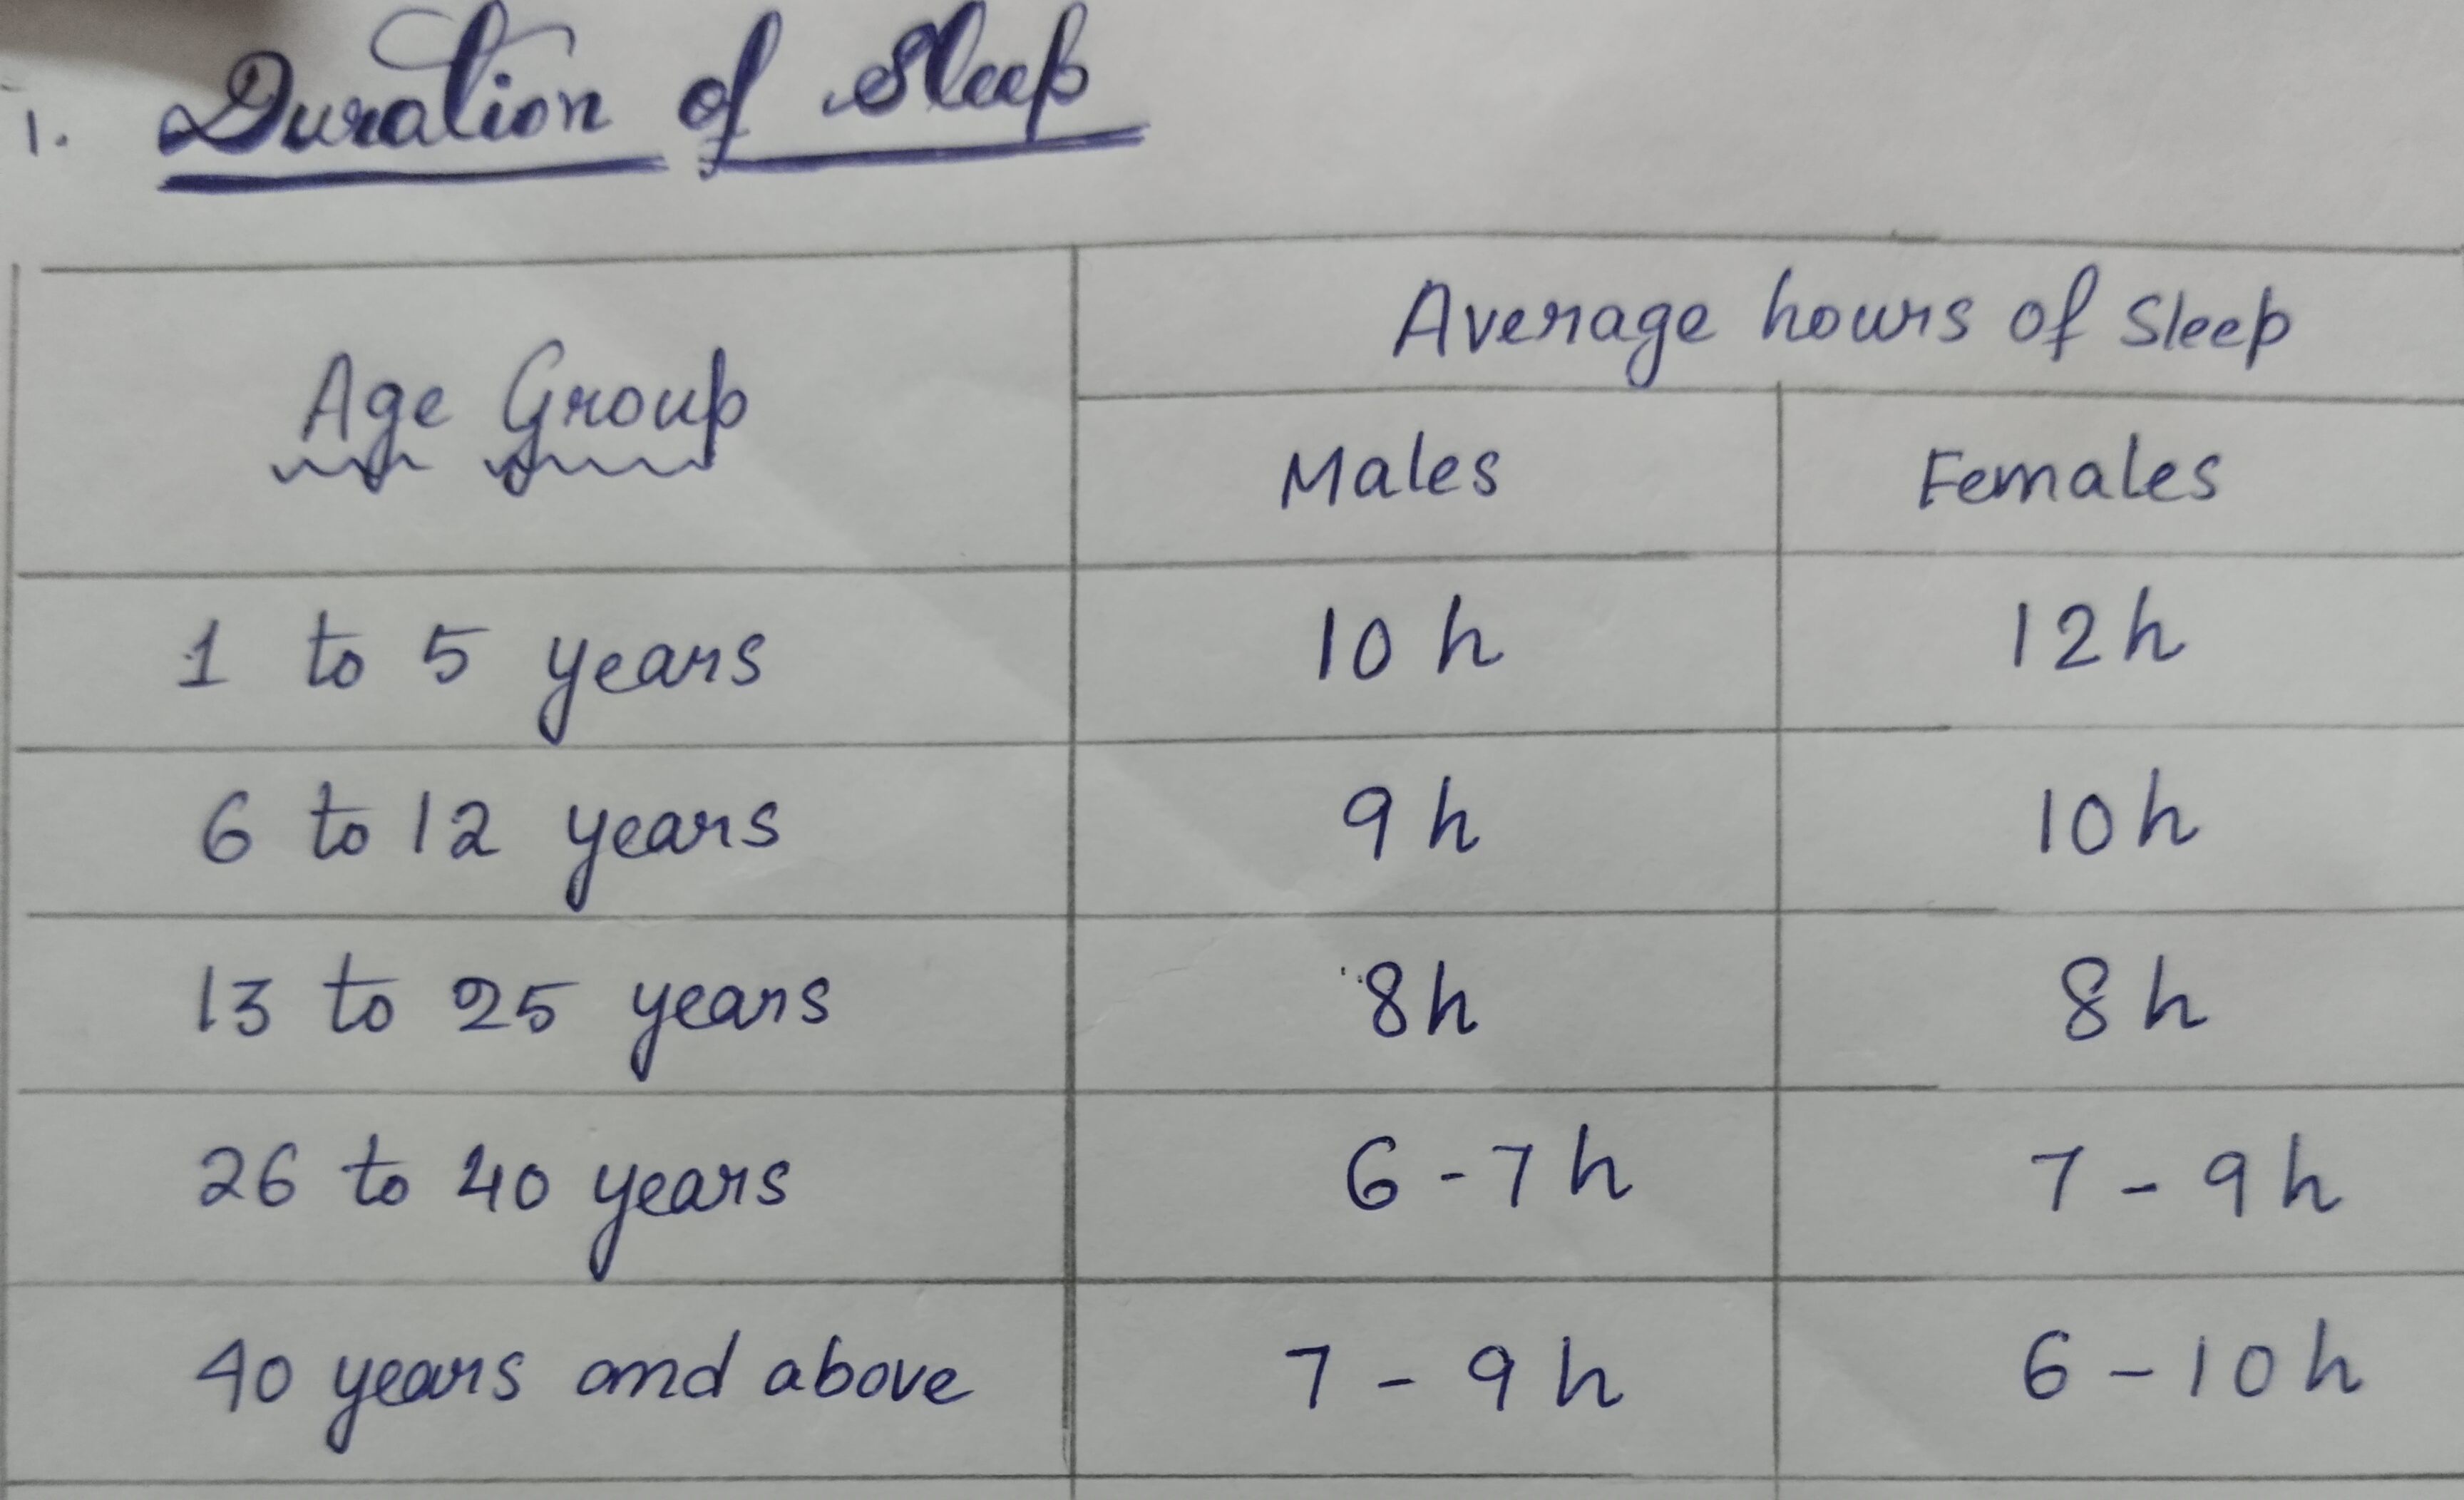 1. Duration of Sleep
Average hours of Sleep
Age Group
Males Females
1 to 5 years 10 h 12 h
6 to 12 years 9 h 10 h
13 to 25 years 8 h 8 h
26 to 40 years 6 - 7 h 7 - 9 h
40 years and above 7 - 9 h 6 - 10 h